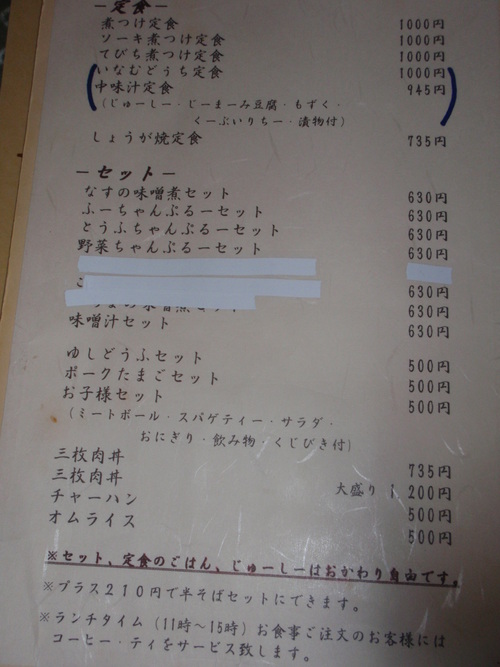 －定食－
煮つけ定食 1000円
ソーキ煮つけ定食 1000円
てびち煮つけ定食 1000円
いなむどぅち定食 1000円
中味汁定食 945円
(じゅーしー・じーまーみ豆腐・もずく・
くーぶいりちー・漬物付)
しょうが焼定食 735円
－セット－
なすの味噌煮セット 630円
ふーちゃんぷるーセット 630円
とうふちゃんぷるーセット 630円
野菜ちゃんぷるーセット 630円
630円
味噌煮セット 630円
味噌汁セット 630円
ゆしどうふセット 500円
ポークたまごセット 500円
お子様セット 500円
(ミートボール・スパゲティー・サラダ・
おにぎり・飲み物・くじびき付)
三枚肉丼 735円
三枚肉丼 大盛り 1,200円
チャーハン 500円
オムライス 500円
※セット、定食のごはん、じゅーしーはおかわり自由です。
※プラス210円で半そばセットにできます。
※ランチタイム(11時～15時)お食事ご注文のお客様には
コーヒー・ティをサービス致します。